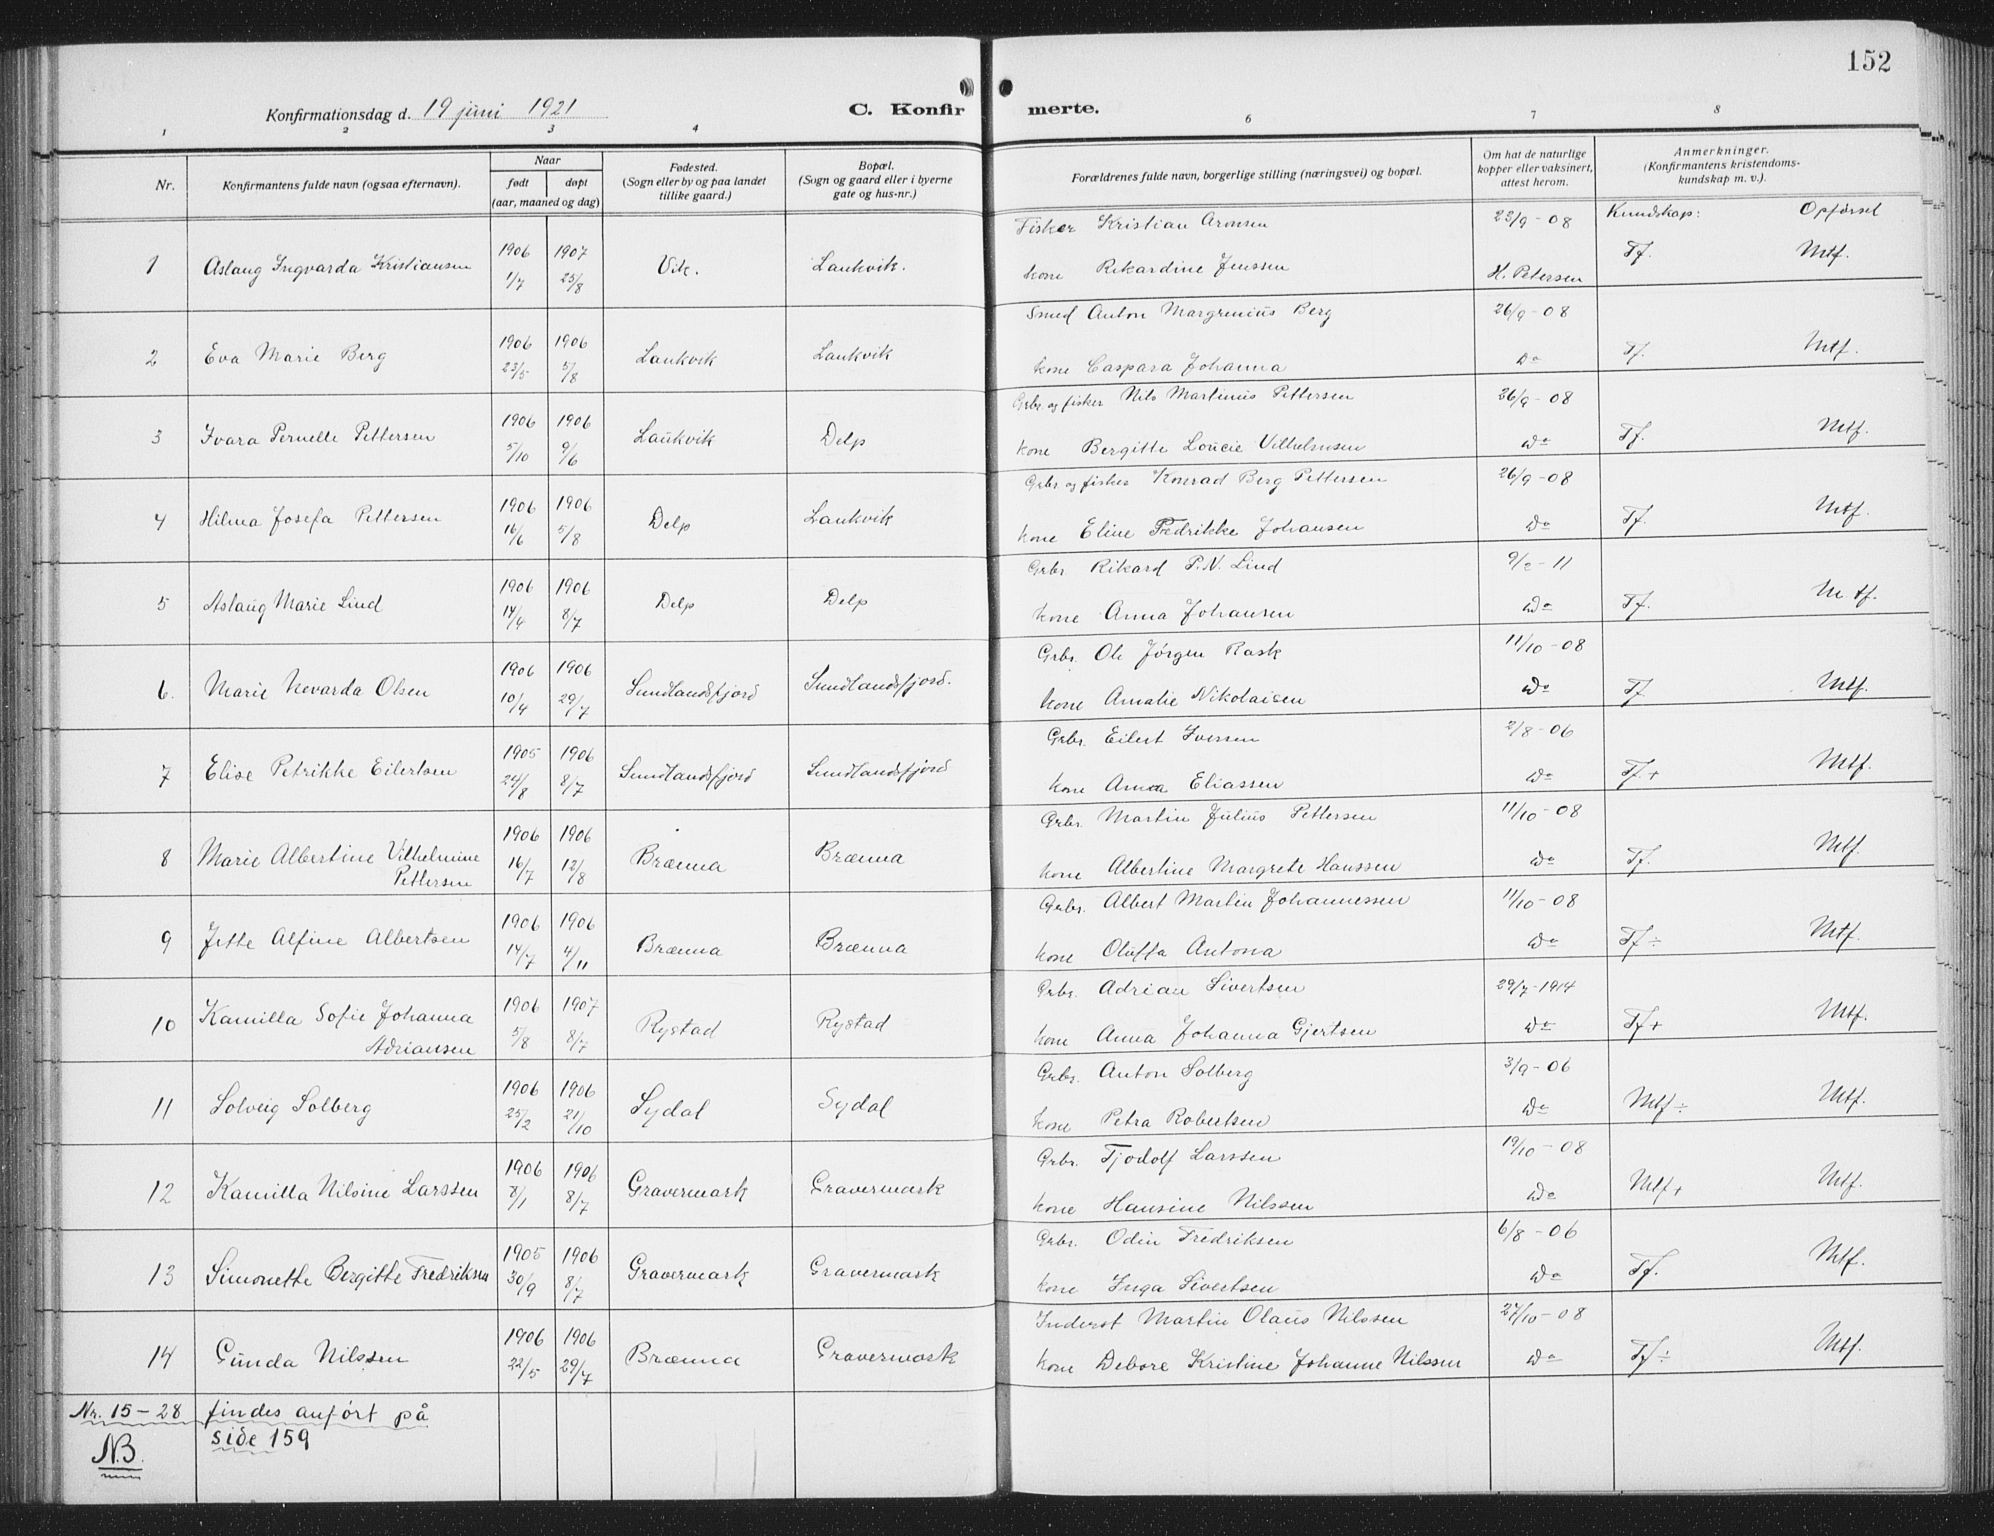 152
Konfirmationsdag d. 19 juni 1921 C. Konfirmerte.
1 2 3 4 6 7 8
Nr. Konfirmantens fulde navn (ogsaa efternavn). Naar født døpt (aar, maaned og dag) Fødested. (Sogn eller by og paa landet tillike gaard.) Bopæl. (Sogn og gaard eller i byerne gate og hus-nr.) Forældrenes fulde navn, borgerlige stilling (næringsvei) og bopæl. Om hat de naturlige kopper eller vaksinert, attest herom. Anmerkninger. (Konfirmantens kristendoms-kundskap m. v.).
Fisker Kristian Aronsen 23/9-08 Kundskap: Opførsel
1 Aslaug Ingvarda Kristiansen 1906 1/7 1907 25/8 Vik. Laukvik. Tf. Mtf.
kone Rikardine Jenssen H. Petersen
Smed Anton Margrenius Berg 26/9-08
2 Eva Marie Berg 1906 23/5 1906 5/8 Laukvik Laukvik Tf. Mtf.
kone Caspara Johanna Do
Grbr og fisker Nils Martinus Pettersen 26/9-08
3 Ivara Pernelle Pettersen 1906 5/10 1906 9/6 Laukvik Delp Tf. Mtf.
kone Bergitte Loucie Vilhelmsen Do
Grbr og fisker Konrad Berg Pettersen 26/9-08
4 Hilma Josefa Pettersen 1906 16/6 1906 5/8 Delp Laukvik Tf. Mtf.
kone Eline Fredrikke Johansen Do
Grbr. Rikard P.N. Lind 9/2-11
5 Aslaug Marie Lind 1906 14/4 1906 8/7 Delp Delp Tf. Mtf.
kone Anna Johansen Do
Grbr. Ole Jørgen Rask 11/10-08
6. Marie Nevarda Olsen 1906 10/4 1906 29/7 Sundlandsfjord Sundlandsfjord. Tf. Mtf.
kone Amalie Nikolaisen Do
Grbr. Eilert Iversen 2/8-06
7 Elise Petrikke Eilertsen 1905 24/8 1906 8/7 Sundlandsfjord Sundlandsfjord Tf.+ Mtf.
kone Anna Eliassen Do
Grbr. Martin Julius Pettersen 11/10-08
8 Marie Albertine Vilhelmine Pettersen 1906 16/7 1906 12/8 Brænna Brænna Tf. Mtf.
kone Albertine Margrete Hanssen Do
Grbr. Albert Martin Johannessen 11/10-08
9 Jette Alfine Albertsen 1906 14/7 1906 4/11 Brænna Brænna Tf÷ Mtf.
kone Oluffa Antona Do
Grbr. Adrian Sivertsen 29/7-1914
10 Kamilla Sofie Johanna Adriansen 1906 5/8 1907 8/7 Rystad Rystad Tf+ Mtf.
kone Anna Johanna Gjertsen Do
Grbr. Anton Solberg 3/9-06
11 Solveig Solberg 1906 25/2 1906 21/10 Sydal Sydal Mtf÷ Mtf.
kone Petra Robertsen Do
Grbr. Tjodolf Larssen 19/10-08
12 Kamilla Nilsine Larssen 1906 8/1 1906 8/7 Gravermark Gravermark Mtf+ Mtf.
kone Hansine Nilssen Do
Grbr. Odin Fredriksen 6/8-06
13 Simonette Bergitte Fredriksen 1905 30/9 1906 8/7 Gravermark Gravermark Tf. Mtf.
kone Inga Sivertsen Do
Inderst Martin Olaus Nilssen 27/10-08
14 Gunda Nilssen 1906 22/5 1906 29/7 Brænna Gravermark Tf÷ Mtf.
kone Debore Kristine Johanne Nilssen Do
Nr. 15-28 findes anført på
side 159
NB.